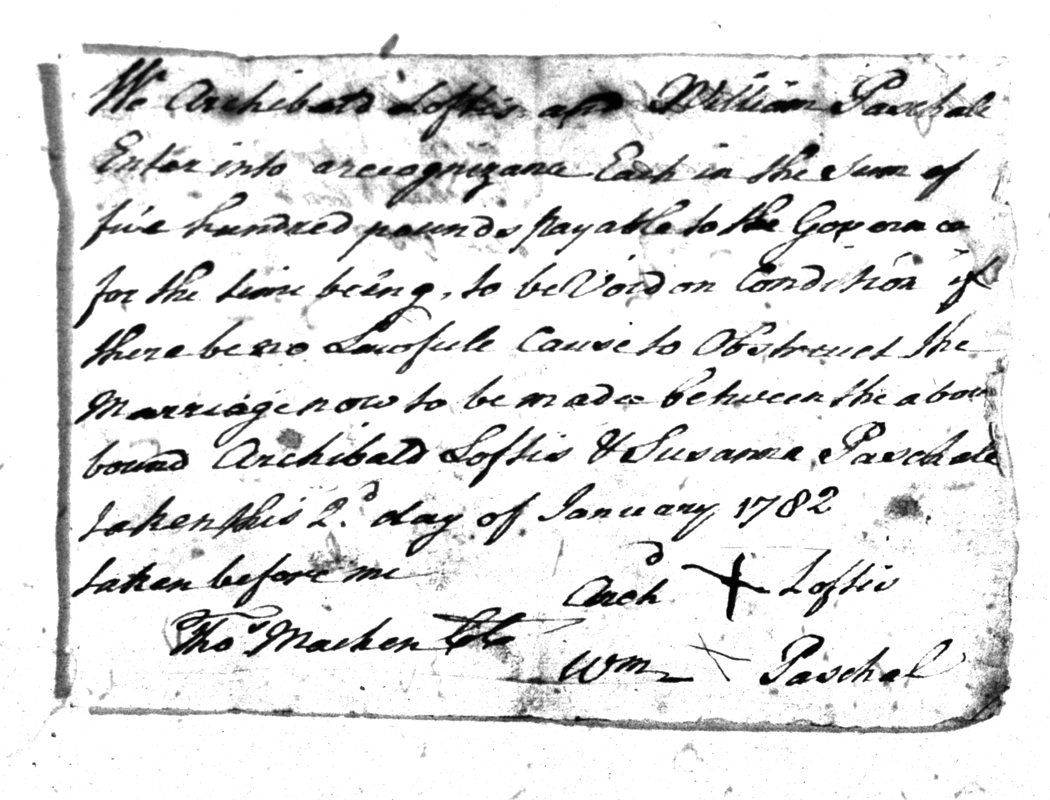 We Archibald Loftis and William Paschale
Enter into a recognizance Each in the Sum of
five hundred pounds payable to the Govornor
for the time being, to be Void on Condition if
there be no Lawfule Cause to Obstruct the
Marriage now to be made between the above
bound Archibald Loftis & Susanna Paschale
taken this 2d. day of January 1782
taken before me
Archd + Loftis
Thos Machen
Wm + Paschal